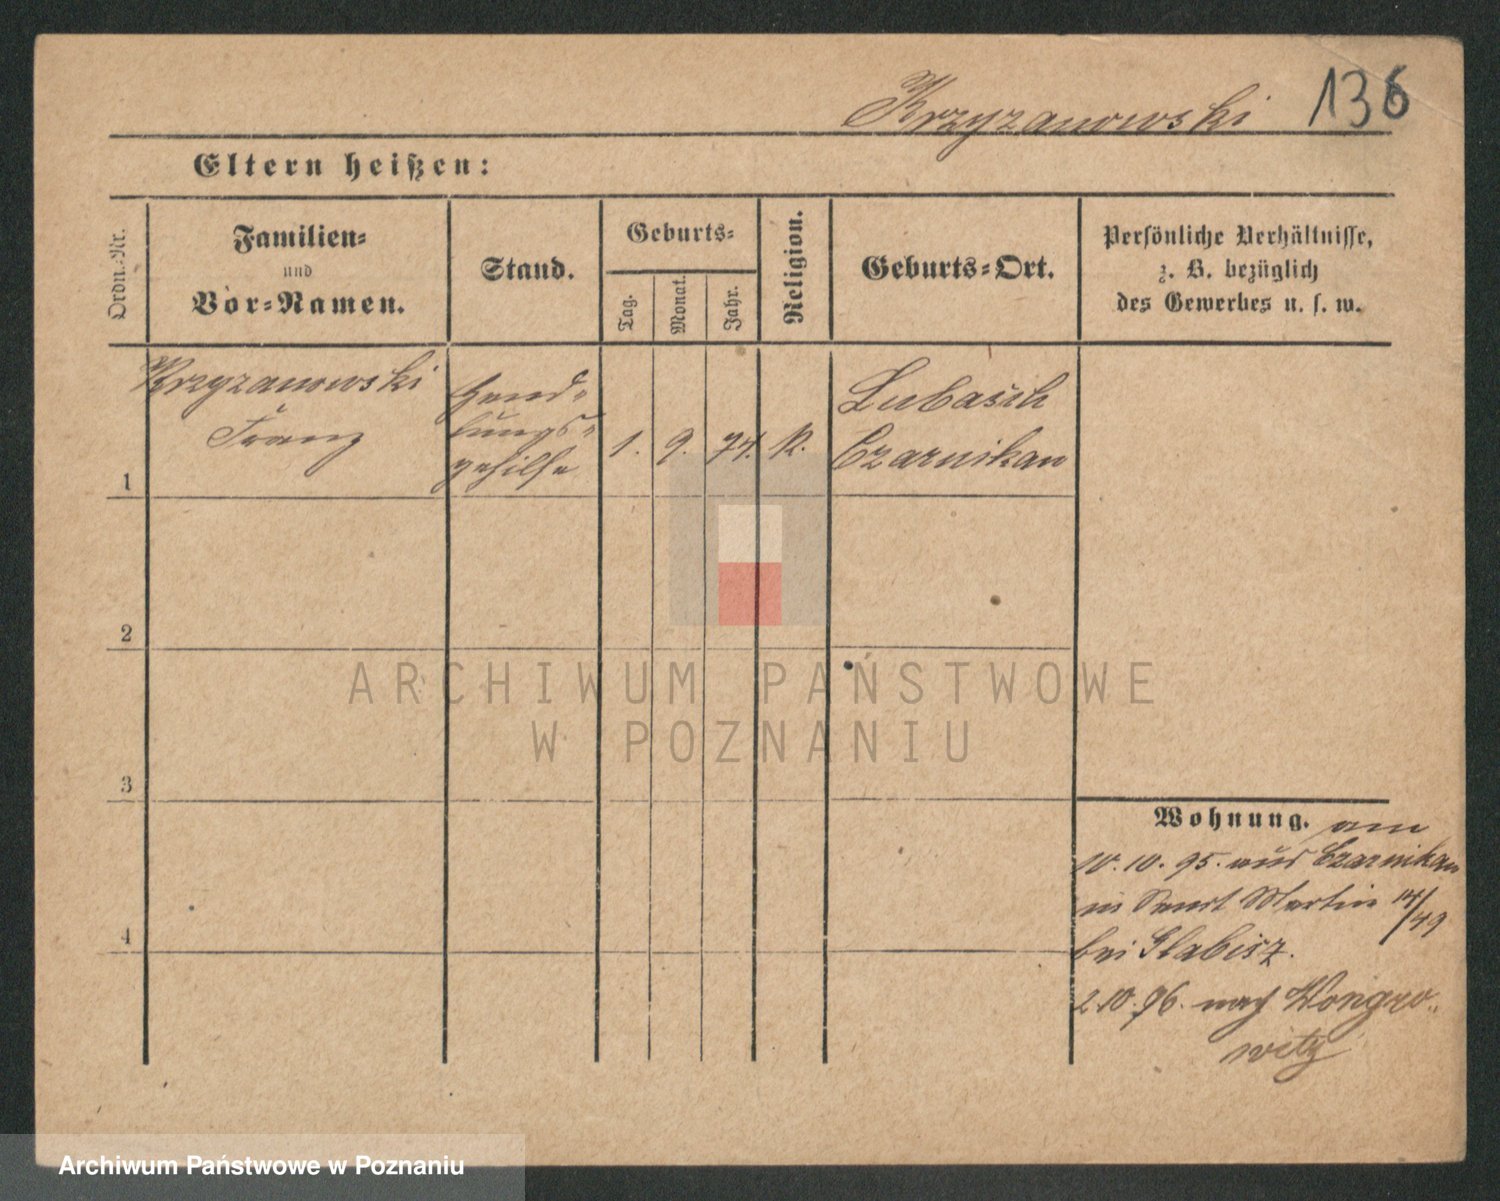 Krzyzanowski 136
Eltern heißen:
Ordn.-Nr.
Familien-
und
Vor-Namen.
Stand.
Geburts-
Tag.
Monat.
Jahr.
Religion.
Geburts-Ort.
Persönliche Verhältnisse,
z. B. bezüglich
des Gewerbes u. s. w.
1
Krzyzanowski
Franz
Hand-
lungs-
gehilfe
1. 9. 74. K.
Lubasch
Czarnikau
2
3
4
Wohnung. am
10. 10. 95. aus Czarnikau
in Sanct Martin 14/49
bei Glabisz.
2.10.96. nach Wongro-
witz
ARCHIWUM PAŃSTWOWE
W POZNANIU
Archiwum Państwowe w Poznaniu